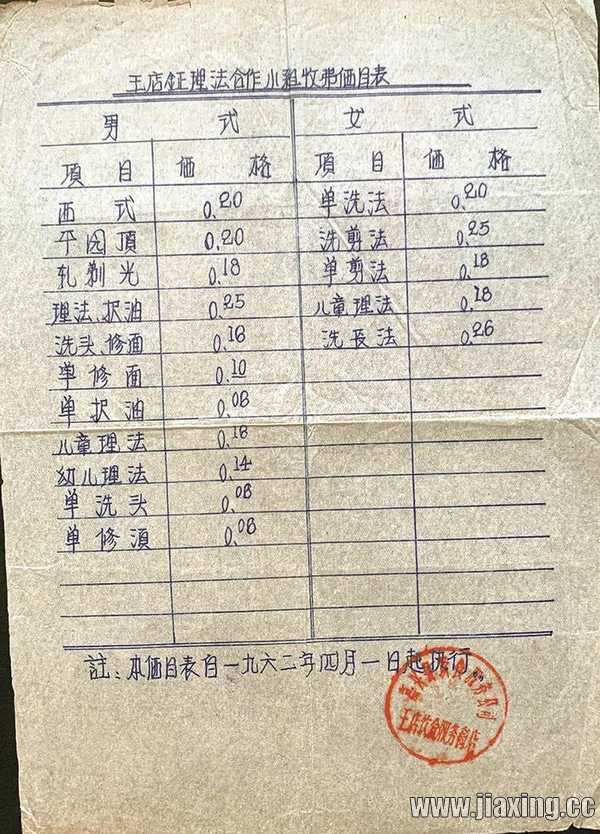 王店钲理法合作小組收费価目表
男 式 女 式
項 目 価 格 項 目 価 格
西 式 0.20 单洗法 0.20
平园頂 0.20 洗剪法 0.25
轧剃光 0.18 单剪法 0.18
理法、択油 0.25 儿童理法 0.18
洗头、修面 0.18 洗長法 0.26
单修面 0.10
单択油 0.08
儿童理法 0.18
幼儿理法 0.14
单洗头 0.08
单修须 0.08
註:本価目表自一九六二年四月一日起执行。
王店饮食服务商店
www.jiaxing.cc